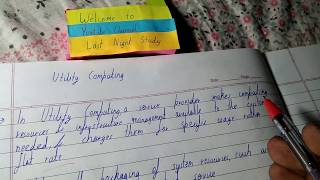 Welcome to
Youtube Channel
Last Night Study
Utility Computing
Date
Page
→ In Utility Computing a service provider makes computing
resources & infrastructure management available to the customer
needed, & charges them for specific usage rather
flat rate
the packaging of system resources, such as
service